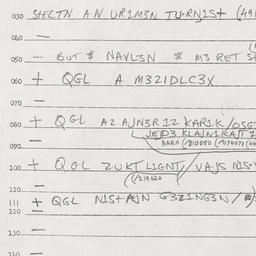 030 SHELTN AN UR1M3N TURN1S+ (491
040 —
050 — BUT $ NAVLSN $ M3 RET S
060 + QGL A M3Z1DLC3X
070 —
080 + QGL AZ AJN3R 1Z KAR1K/OSG
JE1D3 KLAJN1KAJT
090 — BARK (/010050 (/074071
100 + QGL ZUKT LIGNT/ VAJS N1S+
(/219020
110 —
111 + QGL N1S+AJN G3Z1NG3N/
120 —
130 —
140